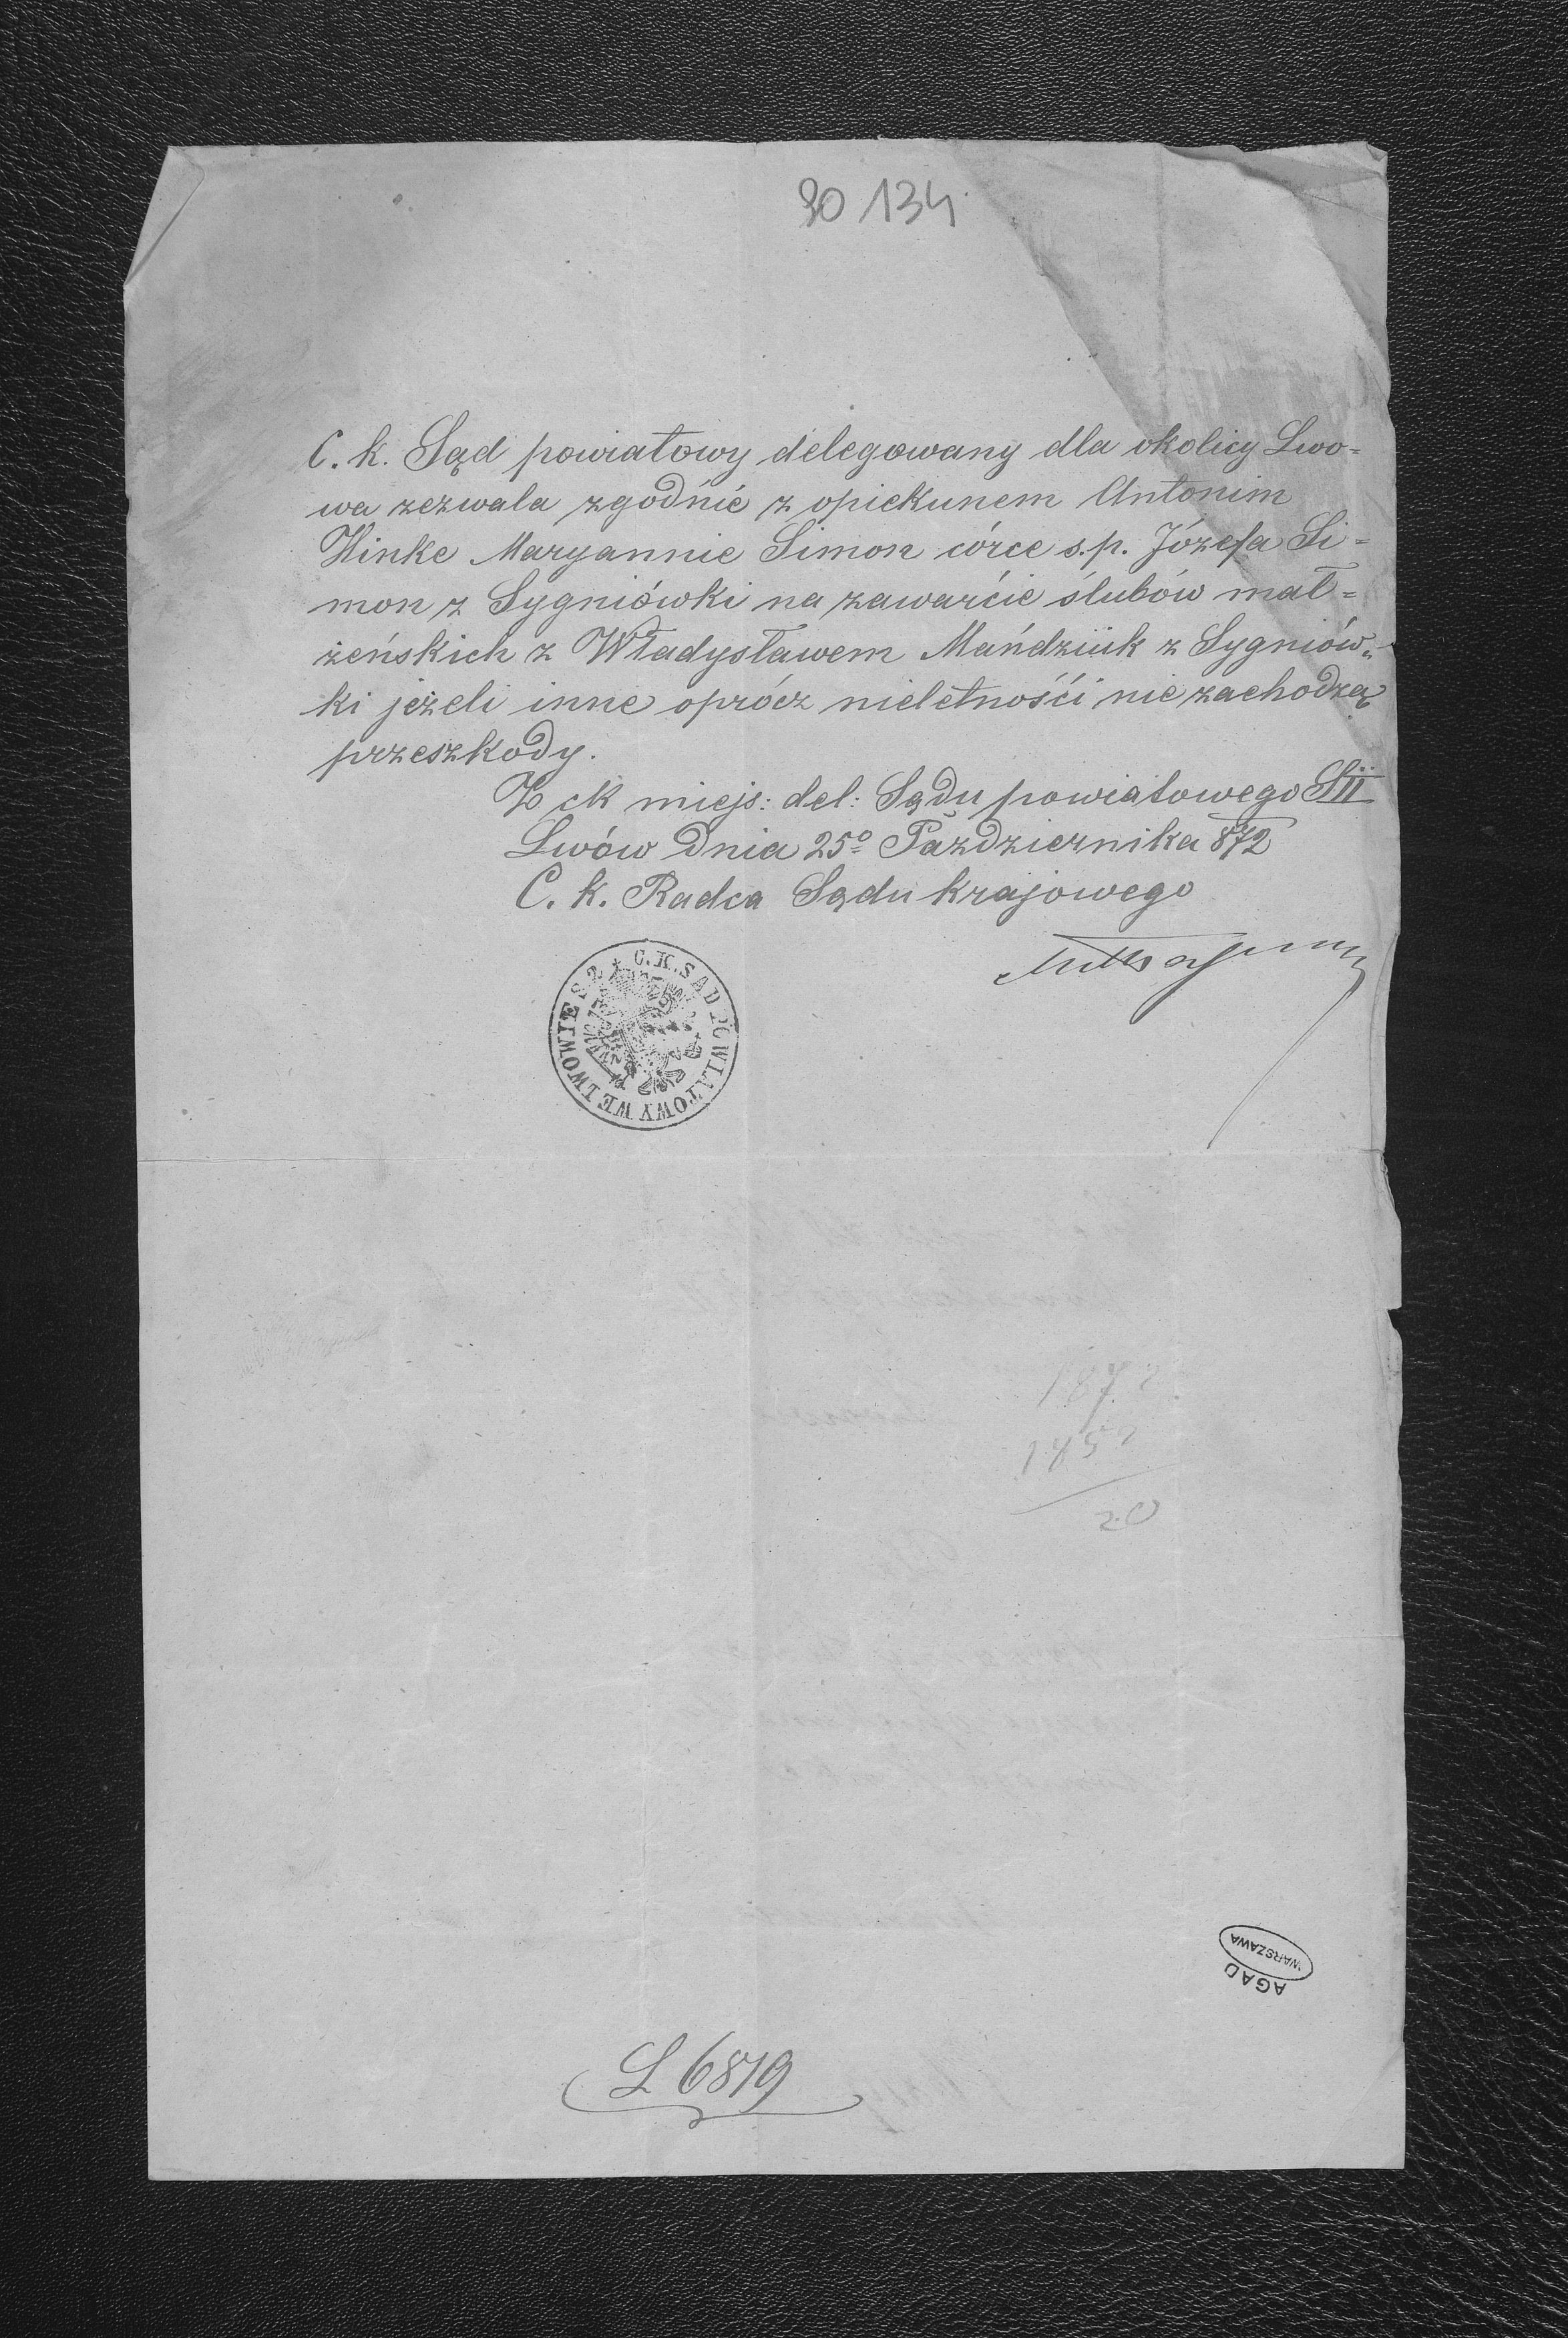 90 134
C. k. Sąd powiatowy delegowany dla okolicy Lwo=
wa zezwala zgodnie z opiekunem Antonim
Hinke Maryannie Simon córce s.p. Józefa Si=
mon z Sygniówki na zawarcie ślubów mał=
żeńskich z Władysławem Mańdziuk z Sygniów=
ki jeżeli inne oprócz nieletnośći nie zachodzą
przeszkody.
Z ck miejs: del: Sądu powiatowego SII
Lwów dnia 25º Października 872
C. k. Radca Sądu krajowego
C.K. SĄD POWIATOWY WE LWOWIE S 2
1872
1852
20
AGAD
WARSZAWA
L 6819